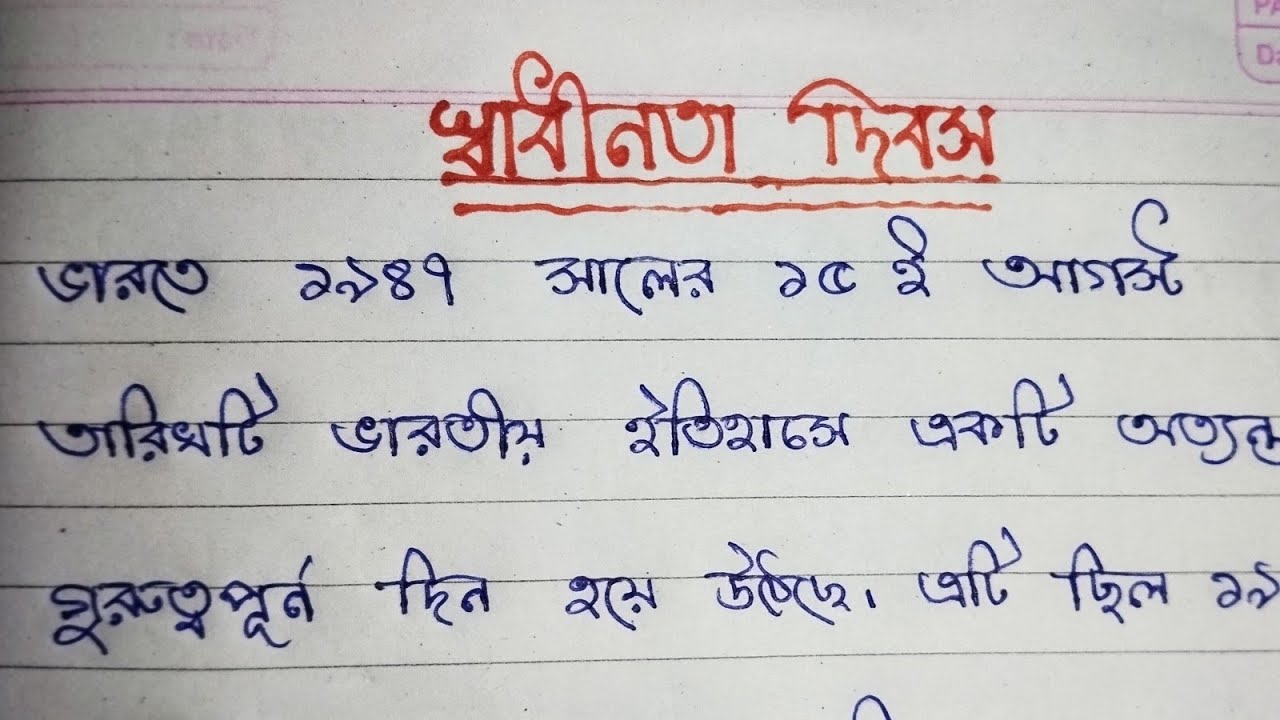 স্বাধীনতা দিবস
ভারতে ১৯৪৭ সালের ১৫ ই আগস্ট
তারিখটি ভারতীয় ইতিহাসে একটি অত্যন্ত
গুরুত্বপূর্ন দিন হয়ে উঠেছে। এটি ছিল ১৯